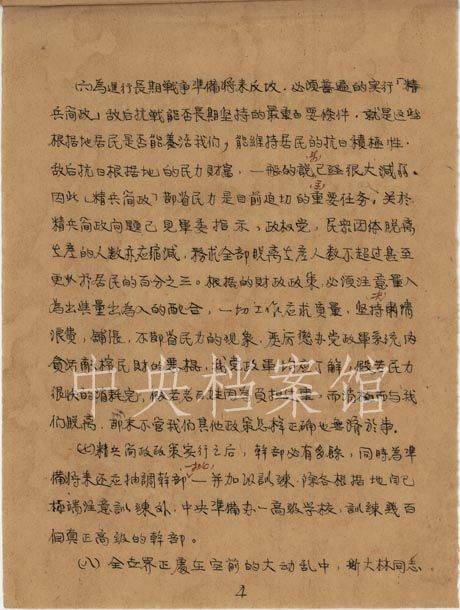 (六)為進行長期戰爭準備將來反攻,必須普遍的實行「精
兵簡政」敌后抗战能否長期坚持的最重要條件,就是这些
根据地居民是否能養活我们,能維持居民的抗日積極性.
敌后抗日根据地的民力財富,一般的說已经很大減弱。
因此「精兵简政」節省民力是目前迫切的重要任务。关於
精兵简政问题已見軍委指示,政权党,民众团体脱离
生產的人数亦应縮減,務求全部脱离生產人数不超过甚至
更少於居民的百分之三。根据地的財政政策,必须注意量入
為出與量出為入的配合,一切工作应求质量,坚持肅清
浪费,鋪張,不節省民力的现象,严厉懲办党政軍系统内
我党政軍均应了解,假若民力
很快的消耗完,假若老百姓因為負担过重,而消极而与我
们脱离,那末不管我们其他政策怎样正确也無济於事。
(七)精兵简政政策实行之后,幹部必有多餘,同時為準
備將来还应抽調幹部一 并加以訓練,除各根据地自己
極端注意訓練外,中央準备办一高級学校,訓練幾百
個真正高級的幹部。
(八)全世界正處在空前的大动乱中,斯大林同志
4
中央档案馆